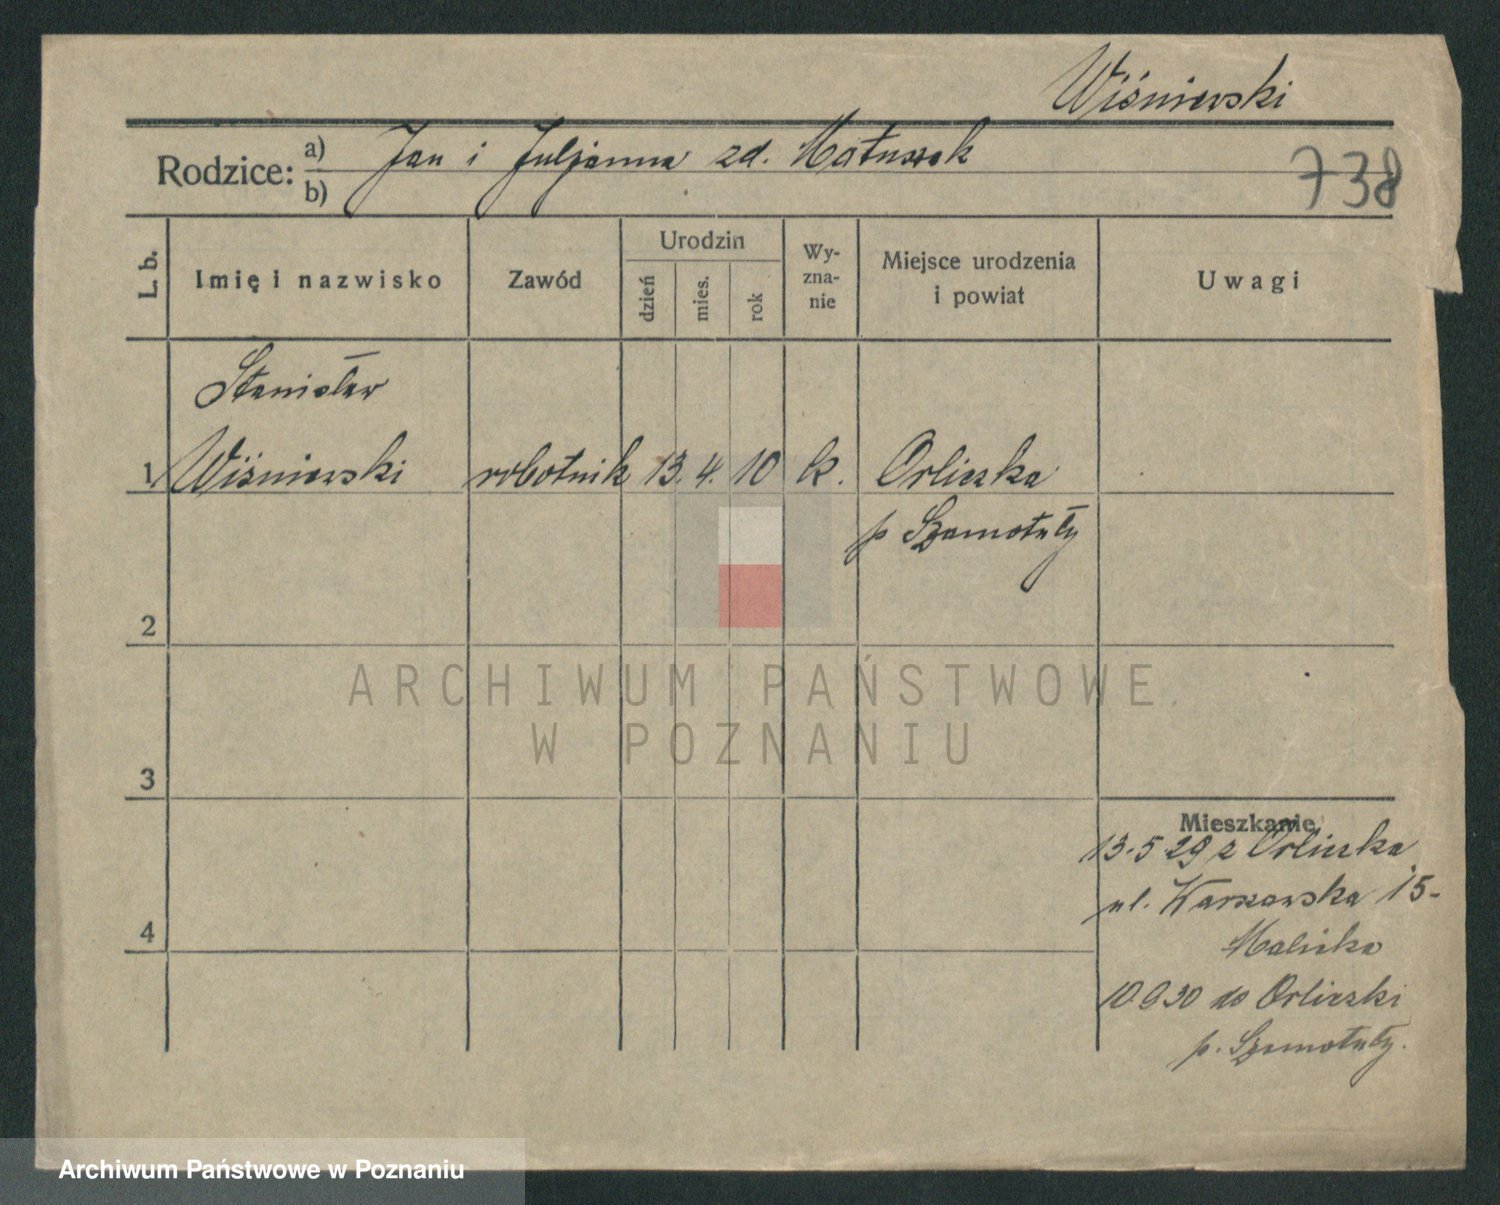 Wiśniewski
Rodzice: a) Jan i Juljanna zd. Matuszak
b)
738
L. b. Imię i nazwisko Zawód Urodzin dzień mies. rok Wy-zna-nie Miejsce urodzenia i powiat Uwagi
Stanisław
1 Wiśniewski robotnik 13. 4. 10 k. Orliczka
p Szamotuły
2
3
4
Mieszkanie
13.5.29 z Orliczka
ul. Warszawska 15-
Malicka
10.9.30 do Orliczki
p. Szamotuły.
ARCHIWUM PAŃSTWOWE
W POZNANIU
Archiwum Państwowe w Poznaniu